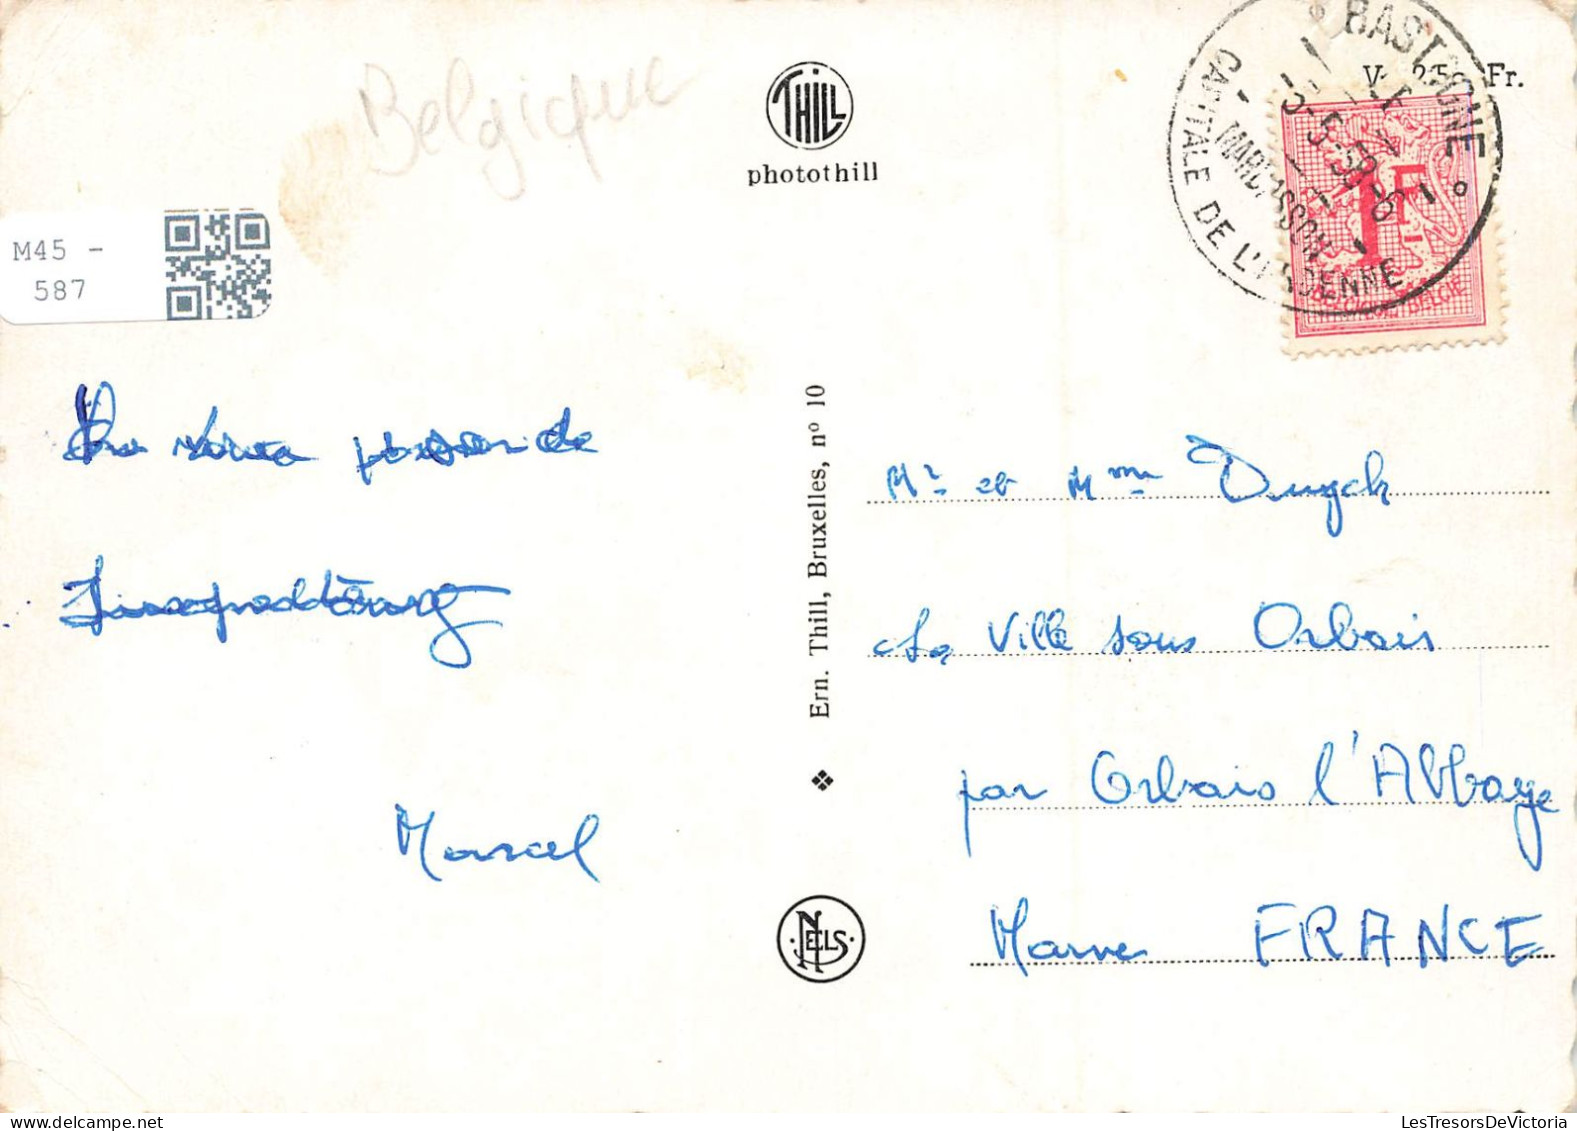 Belgique
THILL
photothill
V. 250 Fr.
BASTOGNE
CAPITALE DE L'ARDENNE
MARDASSON
1F
BELGIE
M45 -
587
Ern. Thill, Bruxelles, nº 10
de
Marcel
Mr et Mme Duyck
La Ville sous Orbais
par Orbais l'Abbaye
Marne FRANCE
NELS
LesTresorsDeVictoria.com